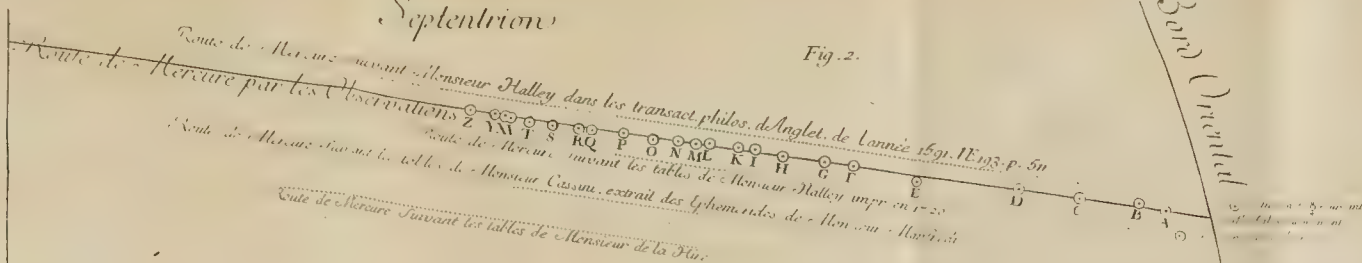 Septentrion
Fig. 2.
Bord Oriental
Route de Mercure suivant Monsieur Halley dans les transact. philos. d'Anglet. de l'année 1691. N.E 193. p. 511
Route de Mercure par les Observations
Z Y X V T S R Q P O N M L K I H G F E D C B A
Route de Mercure suivant les tables de Monsieur Halley impr. en 1720
Route de Mercure suivant les tables de Monsieur Cassini, extrait des Ephemerides de Monsieur Manfredi
Route de Mercure suivant les tables de Monsieur de la Hire